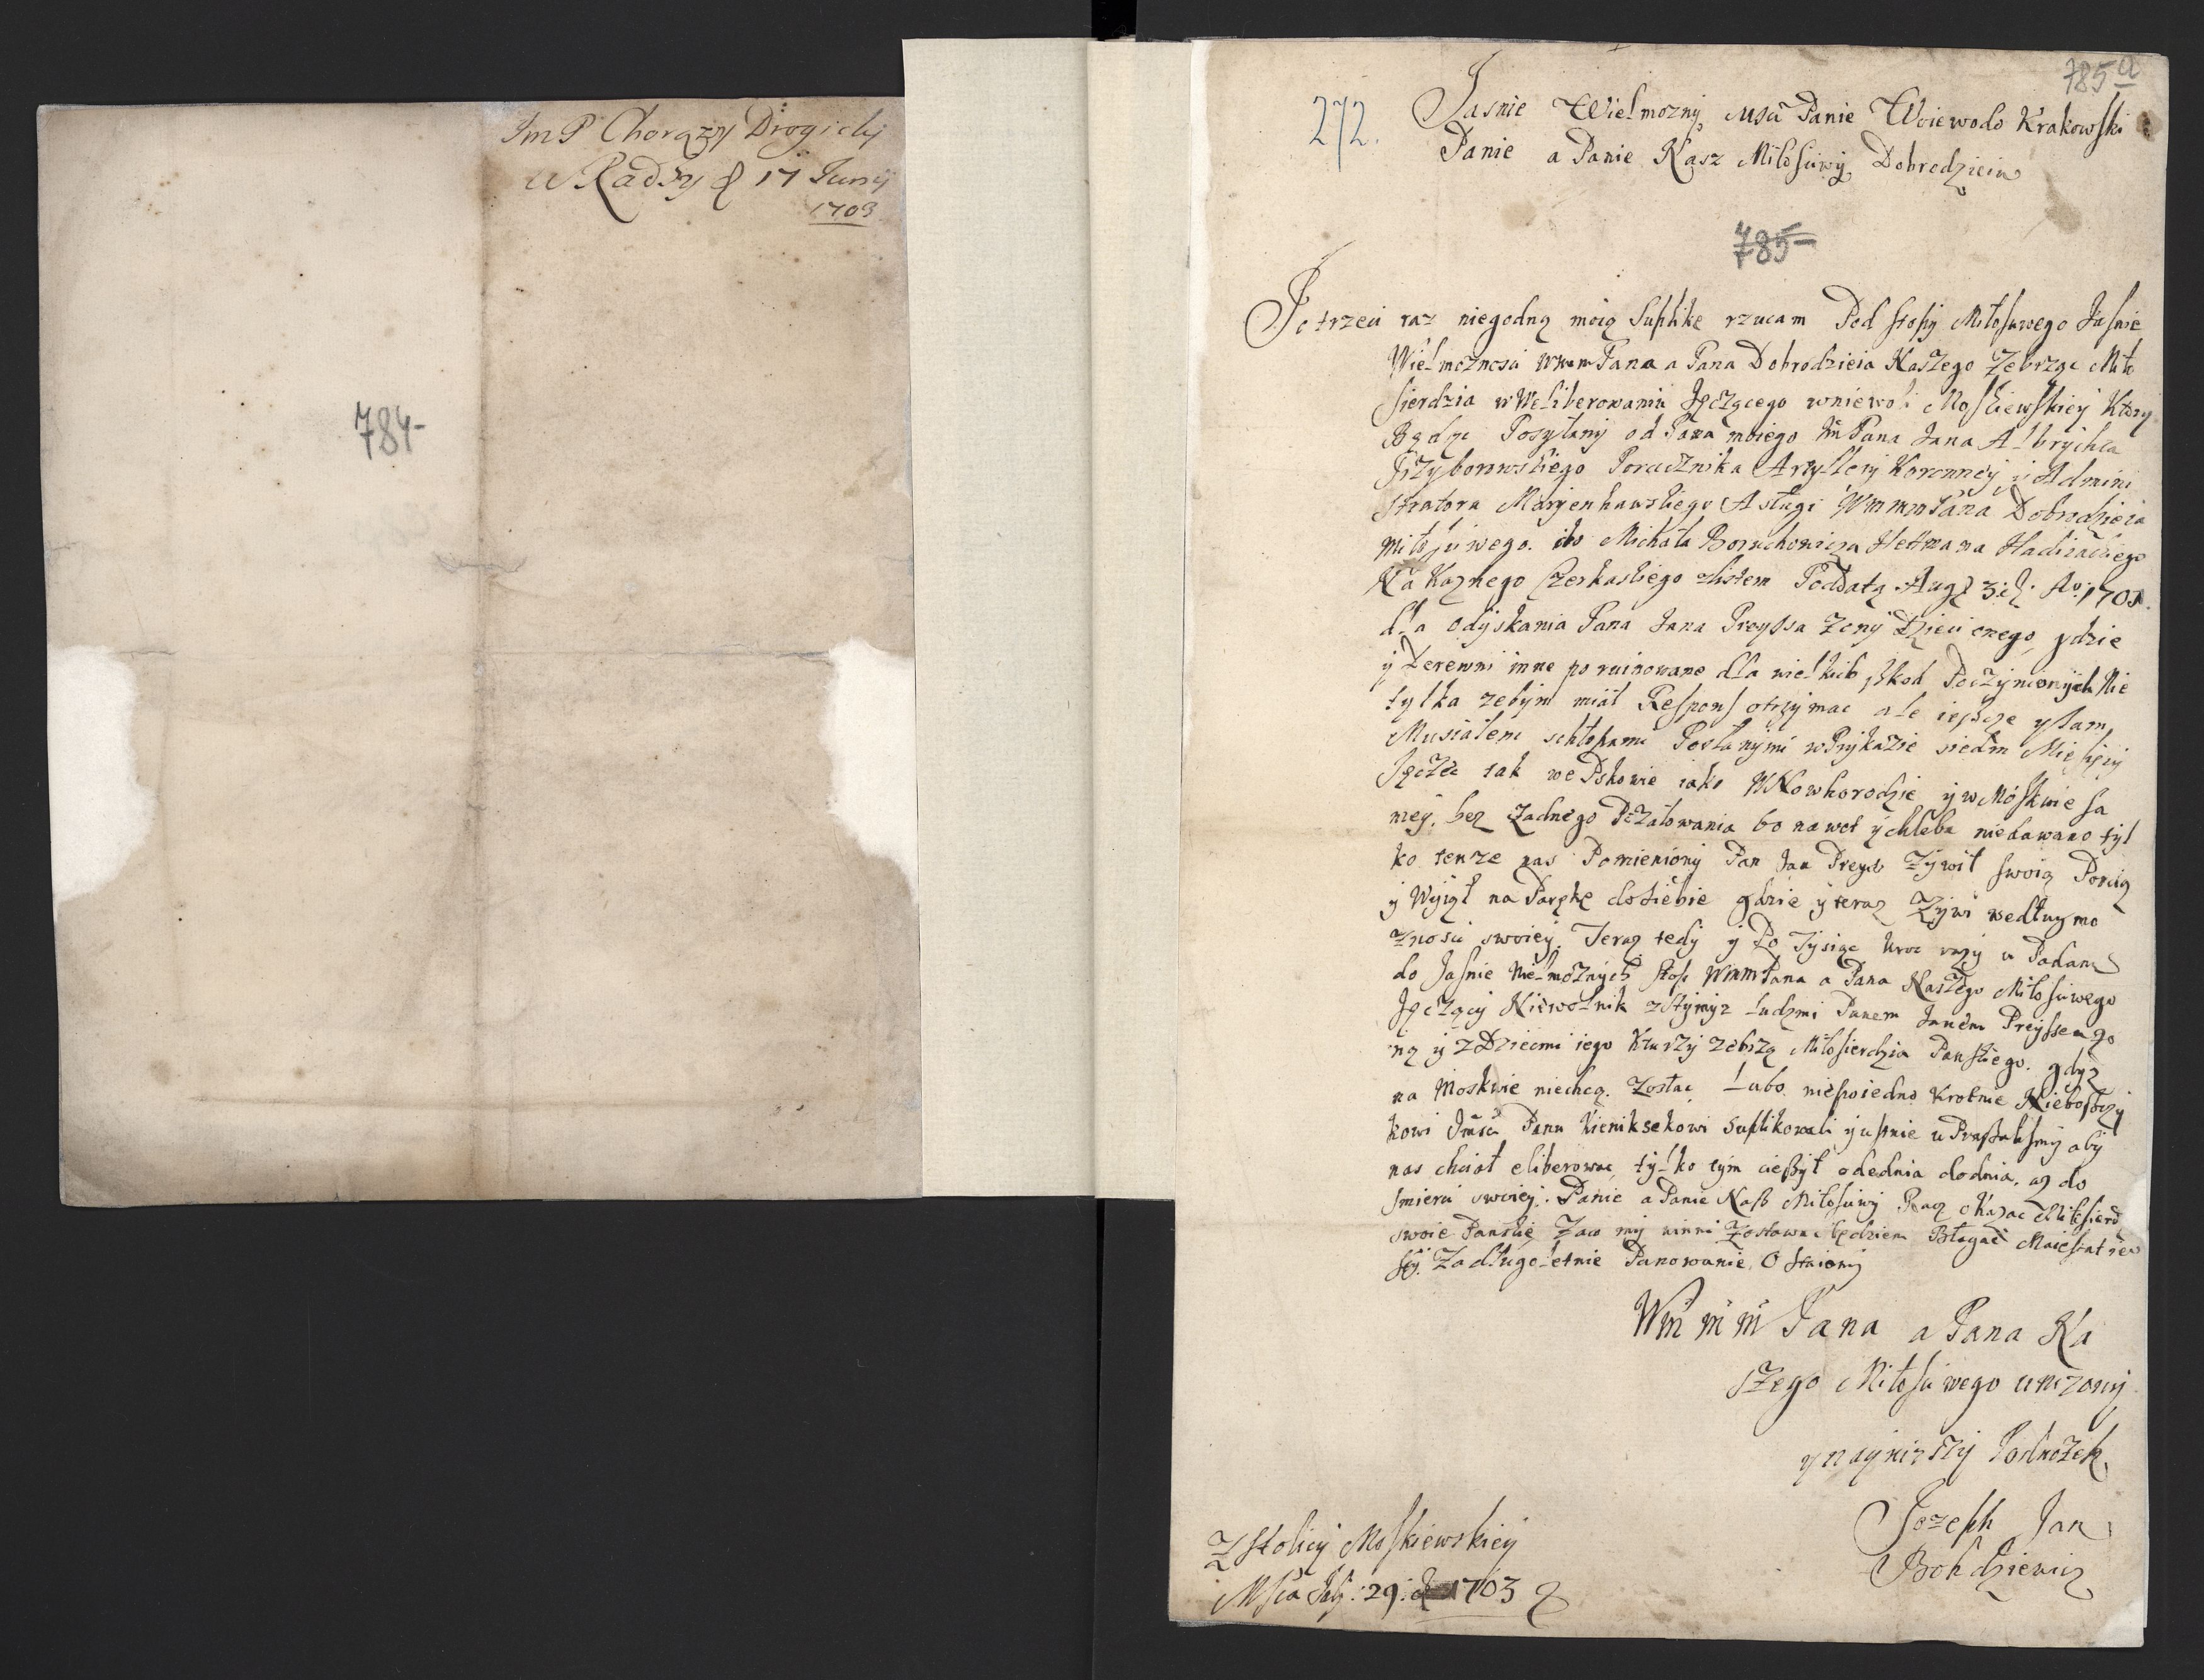 Im P Chorązy Drogicky
w Radzy d 17 Junij
1703
784-
785 a
272.
Jasnie Wielmozny Mśĉ Panie Woiewodo Krakowski
Panie a Panie Nasz Miłosciwy Dobrodzieiu
785-
Po trzeci raz niegodną moię Suplikę rzucam Pod stopy Miłosciwego Jasnie
Wielmoznosci WmmPana a Pana Dobrodzieia Naszego Zebrząc Miło
sierdzia w Weliberowaniu Jęczącego w niewoli Moskiewskiey Ktory
Będąc Posyłany od Pana moiego Im Pana Jana Albrychta
Przyborowskiego Porucznika Artyleryi Koronney y Admini
stratora Maryenhauskiego A sługi WmmmPana Dobrodzieia
Miłosciwego. do Michała Boruchowicza Hetmana Hadiackiego
Nakaznego Czerkaskiego z listem Pod datą Aug. 3. d. Ao 1701.
dla odyskania Pana Jana Preyssa Zony Dzieci onego, gdzie
y Derewni inne porainowane dla wielkich szkod Poczynionych Nie
tylka zebym miał Respons otrzymac ale ieszcze y sam
Musiałem schłopami Posłanymi w Prykazie siedm Miesięcy
Jęczec tak we Pskowie iako W Nowhorodzie y w Moskwie sa
mey, bez Zadnego Pożałowania bo nawet y chleba niedawano tyl
ko tenze nas Pomieniony Pan Jan Preys Zywił swoią Porcią
y Wyiął na Parękę do siebie gdzie y teraz Zywi według mo
znosci swoiey. Teraz tedy y Po Tysiąc kroc razy u Padam
do Jasnie Wielmoznych stop WmmPana a Pana Naszego Miłosciwego
Jęczący Niewolnik z Stymyz ludzmi Panem Janem Preyssem zo
ną y z Dziecmi iego Kturzy zebrzą Miłosierdzia Panskiego. gdyz
na Moskwie niechcą Zostac Lubo niepoiedno Krotnie Nieboszczy
kowi Jmśĉ Panu Kieniksekowi Suplikowali y upnie u Praszalismy aby
nas chciał eliberowac, tylko tym cieszył odednia dodnia, az do
smierci swoiey. Panie a Panie Nasz Miłosciwy Racz okazac Miłosierd
swoie Panskie Zaco my winni Zostawac będziem Błagac Maiestat
Za długoletnie Panowanie
Wm m m Pana a Pana Na
szego Miłosciwego unizony
y naynizszy Podnozek
Jozeph Jan
Bohdziewicz
Z Stolicy Moskiewskiey
Msca July: 29. d 1703